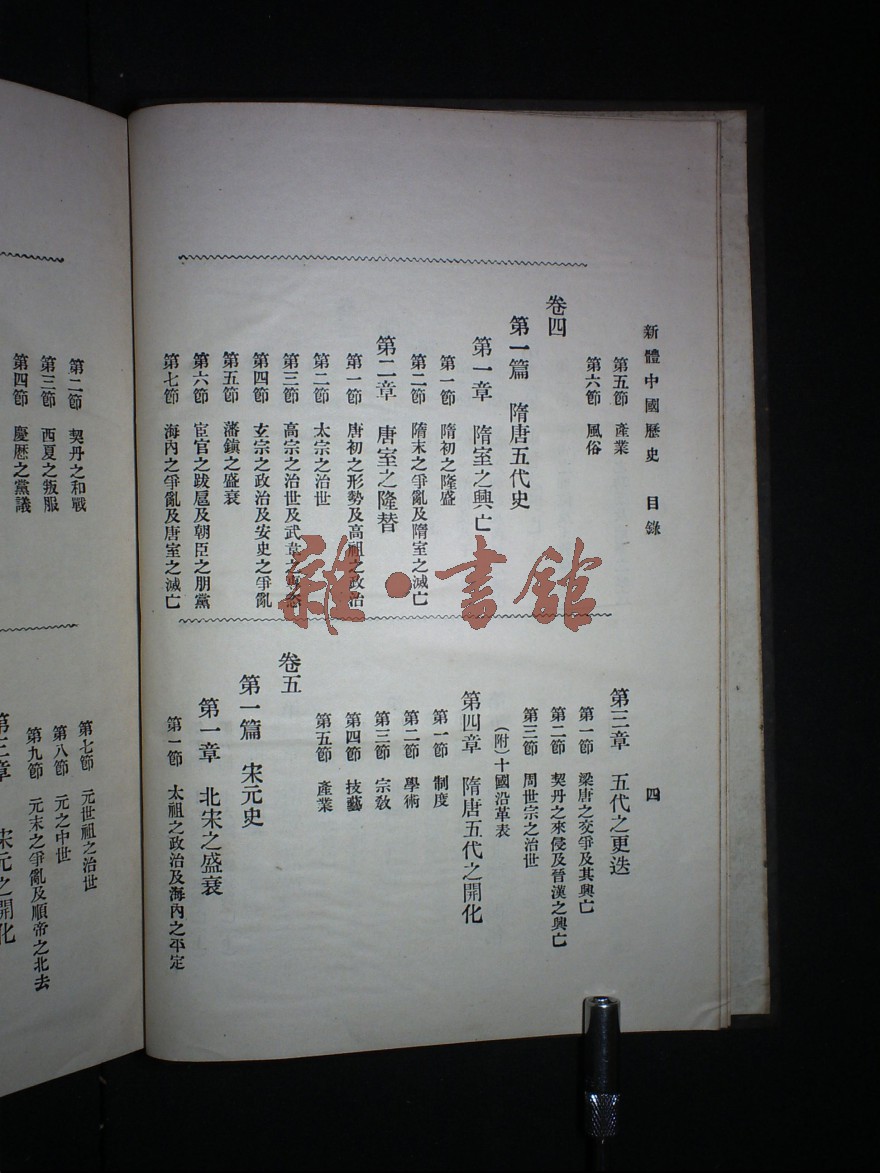 新體中國歷史 目錄
四
第五節 產業
第六節 風俗
卷四
第一篇 隋唐五代史
第一章 隋室之興亡
第一節 隋初之隆盛
第二節 隋末之爭亂及隋室之滅亡
第二章 唐室之隆替
第一節 唐初之形勢及高祖之政治
第二節 太宗之治世
第三節 高宗之治世及武韋之專恣
第四節 玄宗之政治及安史之爭亂
第五節 藩鎮之盛衰
第六節 宦官之跋扈及朝臣之朋黨
第七節 海內之爭亂及唐室之滅亡
第三章 五代之更迭
第一節 梁唐之交爭及其興亡
第二節 契丹之來侵及晉漢之興亡
第三節 周世宗之治世
(附)十國沿革表
第四章 隋唐五代之開化
第一節 制度
第二節 學術
第三節 宗教
第四節 技藝
第五節 產業
卷五
第一篇 宋元史
第一章 北宋之盛衰
第一節 太祖之政治及海內之平定
第二節 契丹之和戰
第三節 西夏之叛服
第四節 慶歷之黨議
第七節 元世祖之治世
第八節 元之中世
第九節 元末之爭亂及順帝之北去
第三章 宋元之開化
雜·書館